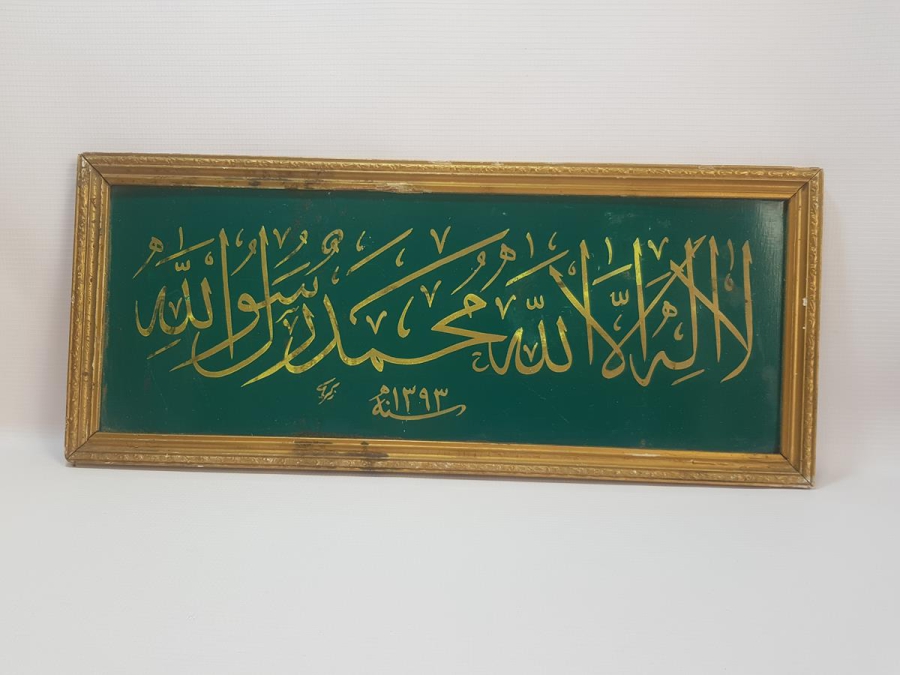 لا إله إلا الله محمد رسول الله
سنة ١٣٩٣